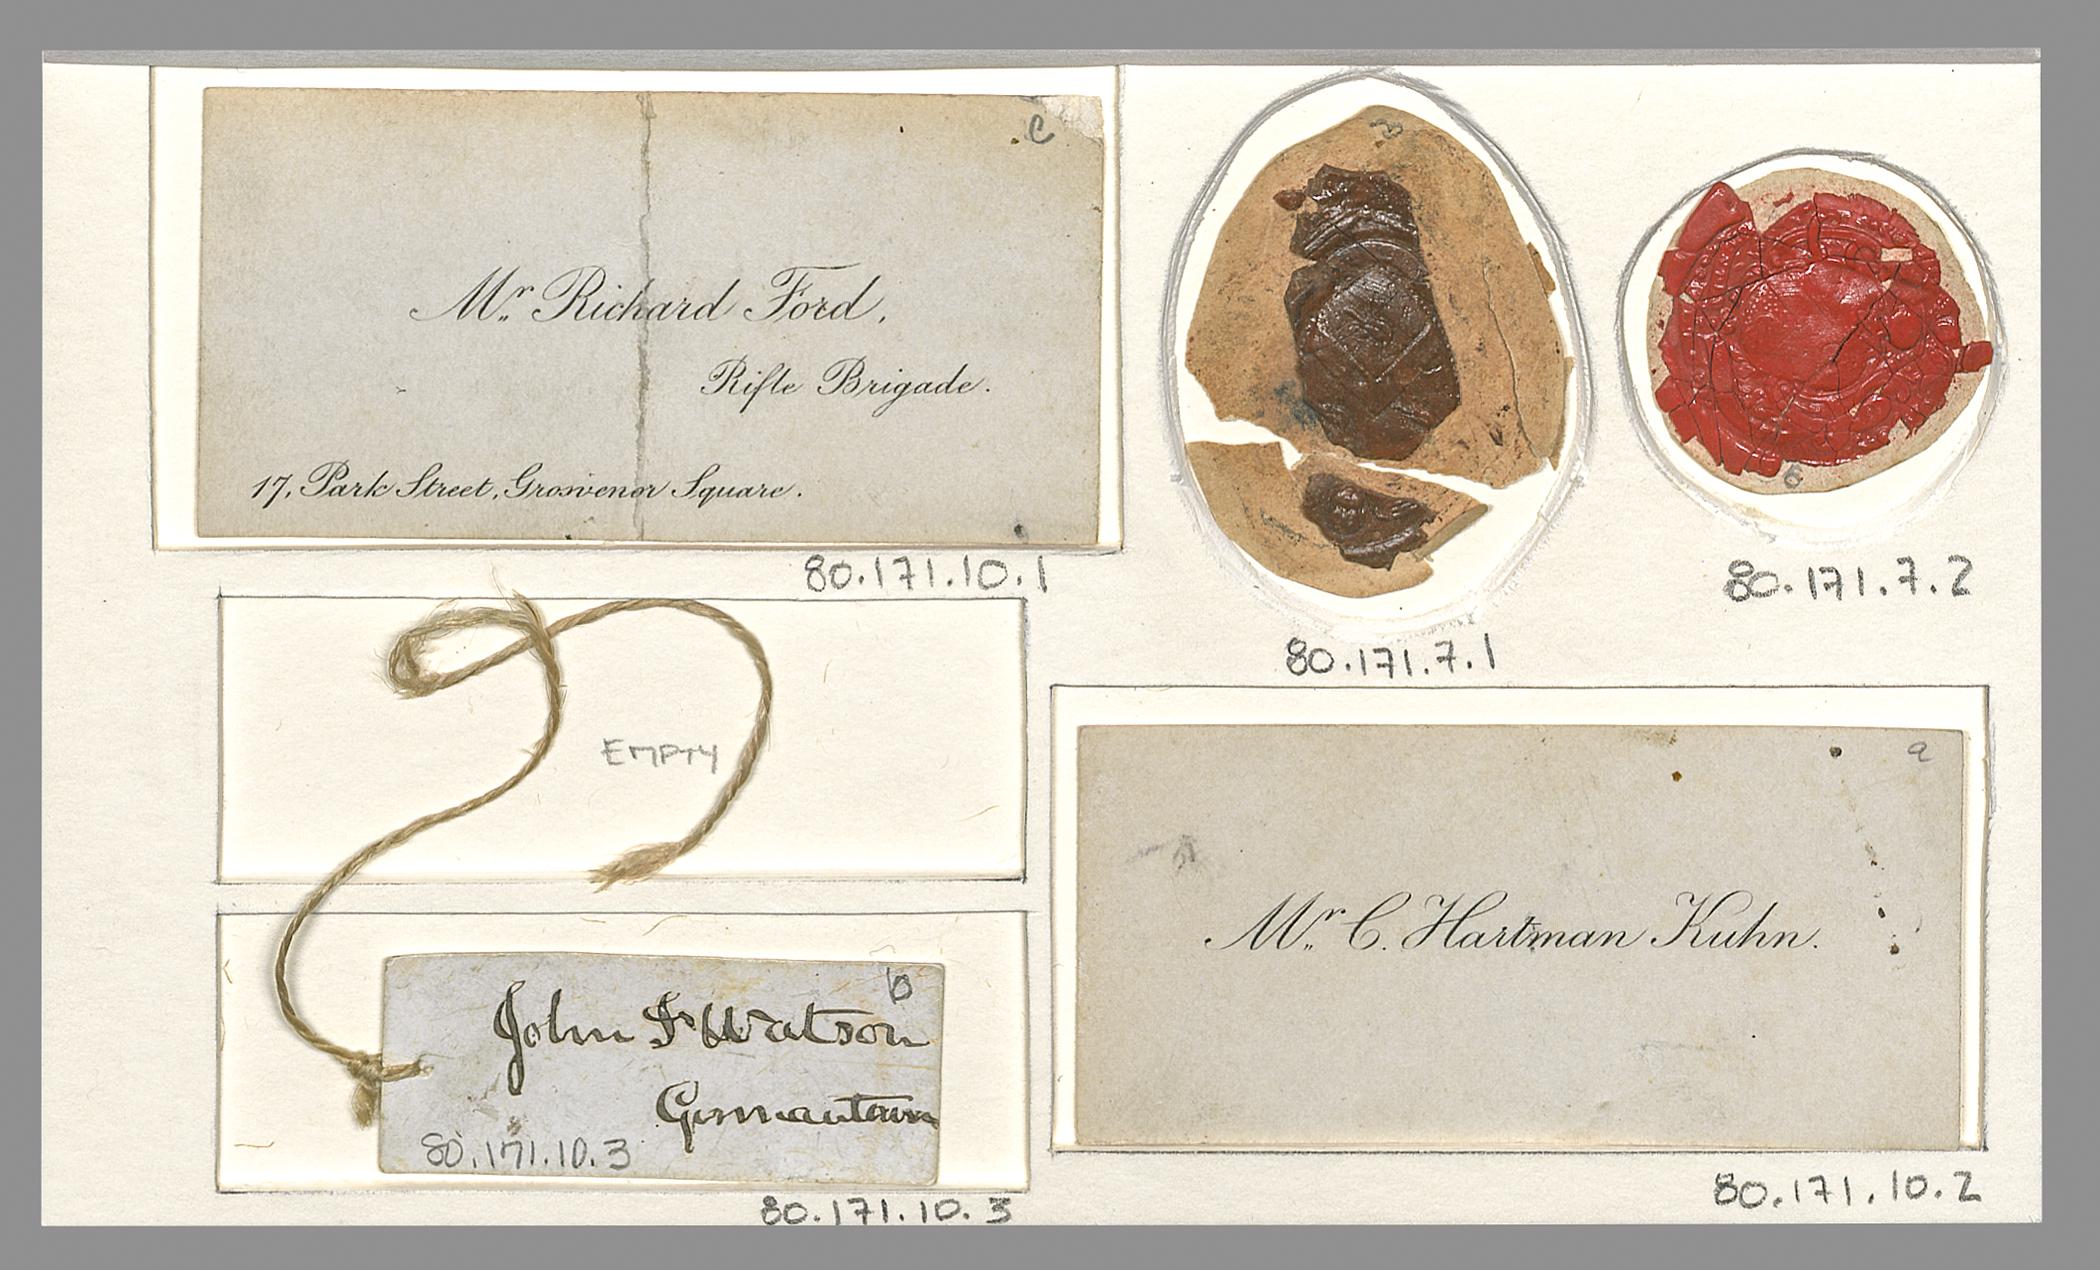 c
Mr. Richard Ford,
Rifle Brigade.
17, Park Street, Grosvenor Square.
80.171.10.1
a
80.171.7.1
b
80.171.7.2
EMPTY
b
John F Watson
Germantown
80.171.10.3
80.171.10.3
a
Mr. C. Hartman Kuhn.
80.171.10.2